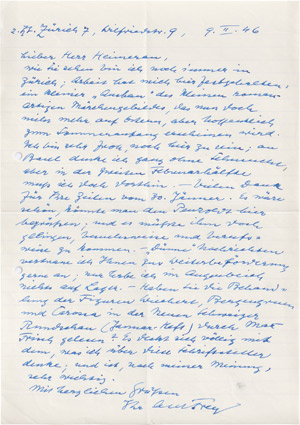 z. Zt. Zürich 7, Wilfriedstr. 9, 9. II. 46
Lieber Herr Heimeran,
wie Sie sehen bin ich noch immer in
Zürich; Arbeit hat mich hier festgehalten,
ein kleiner "Ausbau" des kleinen roman-
artigen Märchengebildes, das nun doch
nichts mehr auf Ostern, aber hoffentlich
zum Sommeranfang erscheinen wird.
Ich bin sehr froh, noch hier zu sein; an
Basel denke ich ganz ohne Sehnsucht,
aber in der zweiten Februarhälfte
muss ich doch dorthin. – Vielen Dank
für Ihre Zeilen vom 30. Jänner. Es wäre
schön, könnte man den Penzoldt hier
begrüssen, und es müsste ihm doch
gelingen, Einreise
zu kommen. –
vertraue ich Ihnen zur Weiterbeförderung
gerne an; nur habe ich im Augenblick
nichts auf Lager. – Haben Sie die Behand-
lung der Figuren Wiechert, Bergengruen
und Carossa in der Neuen Schweizer
Rundschau (Januar-Heft) durch Max
Frisch gelesen? Es deckt sich völlig mit
dem, was ich über diese Schriftsteller
denke; und ist, nach meiner Meinung,
sehr wichtig.
Mit herzlichen Grüssen
Ihr